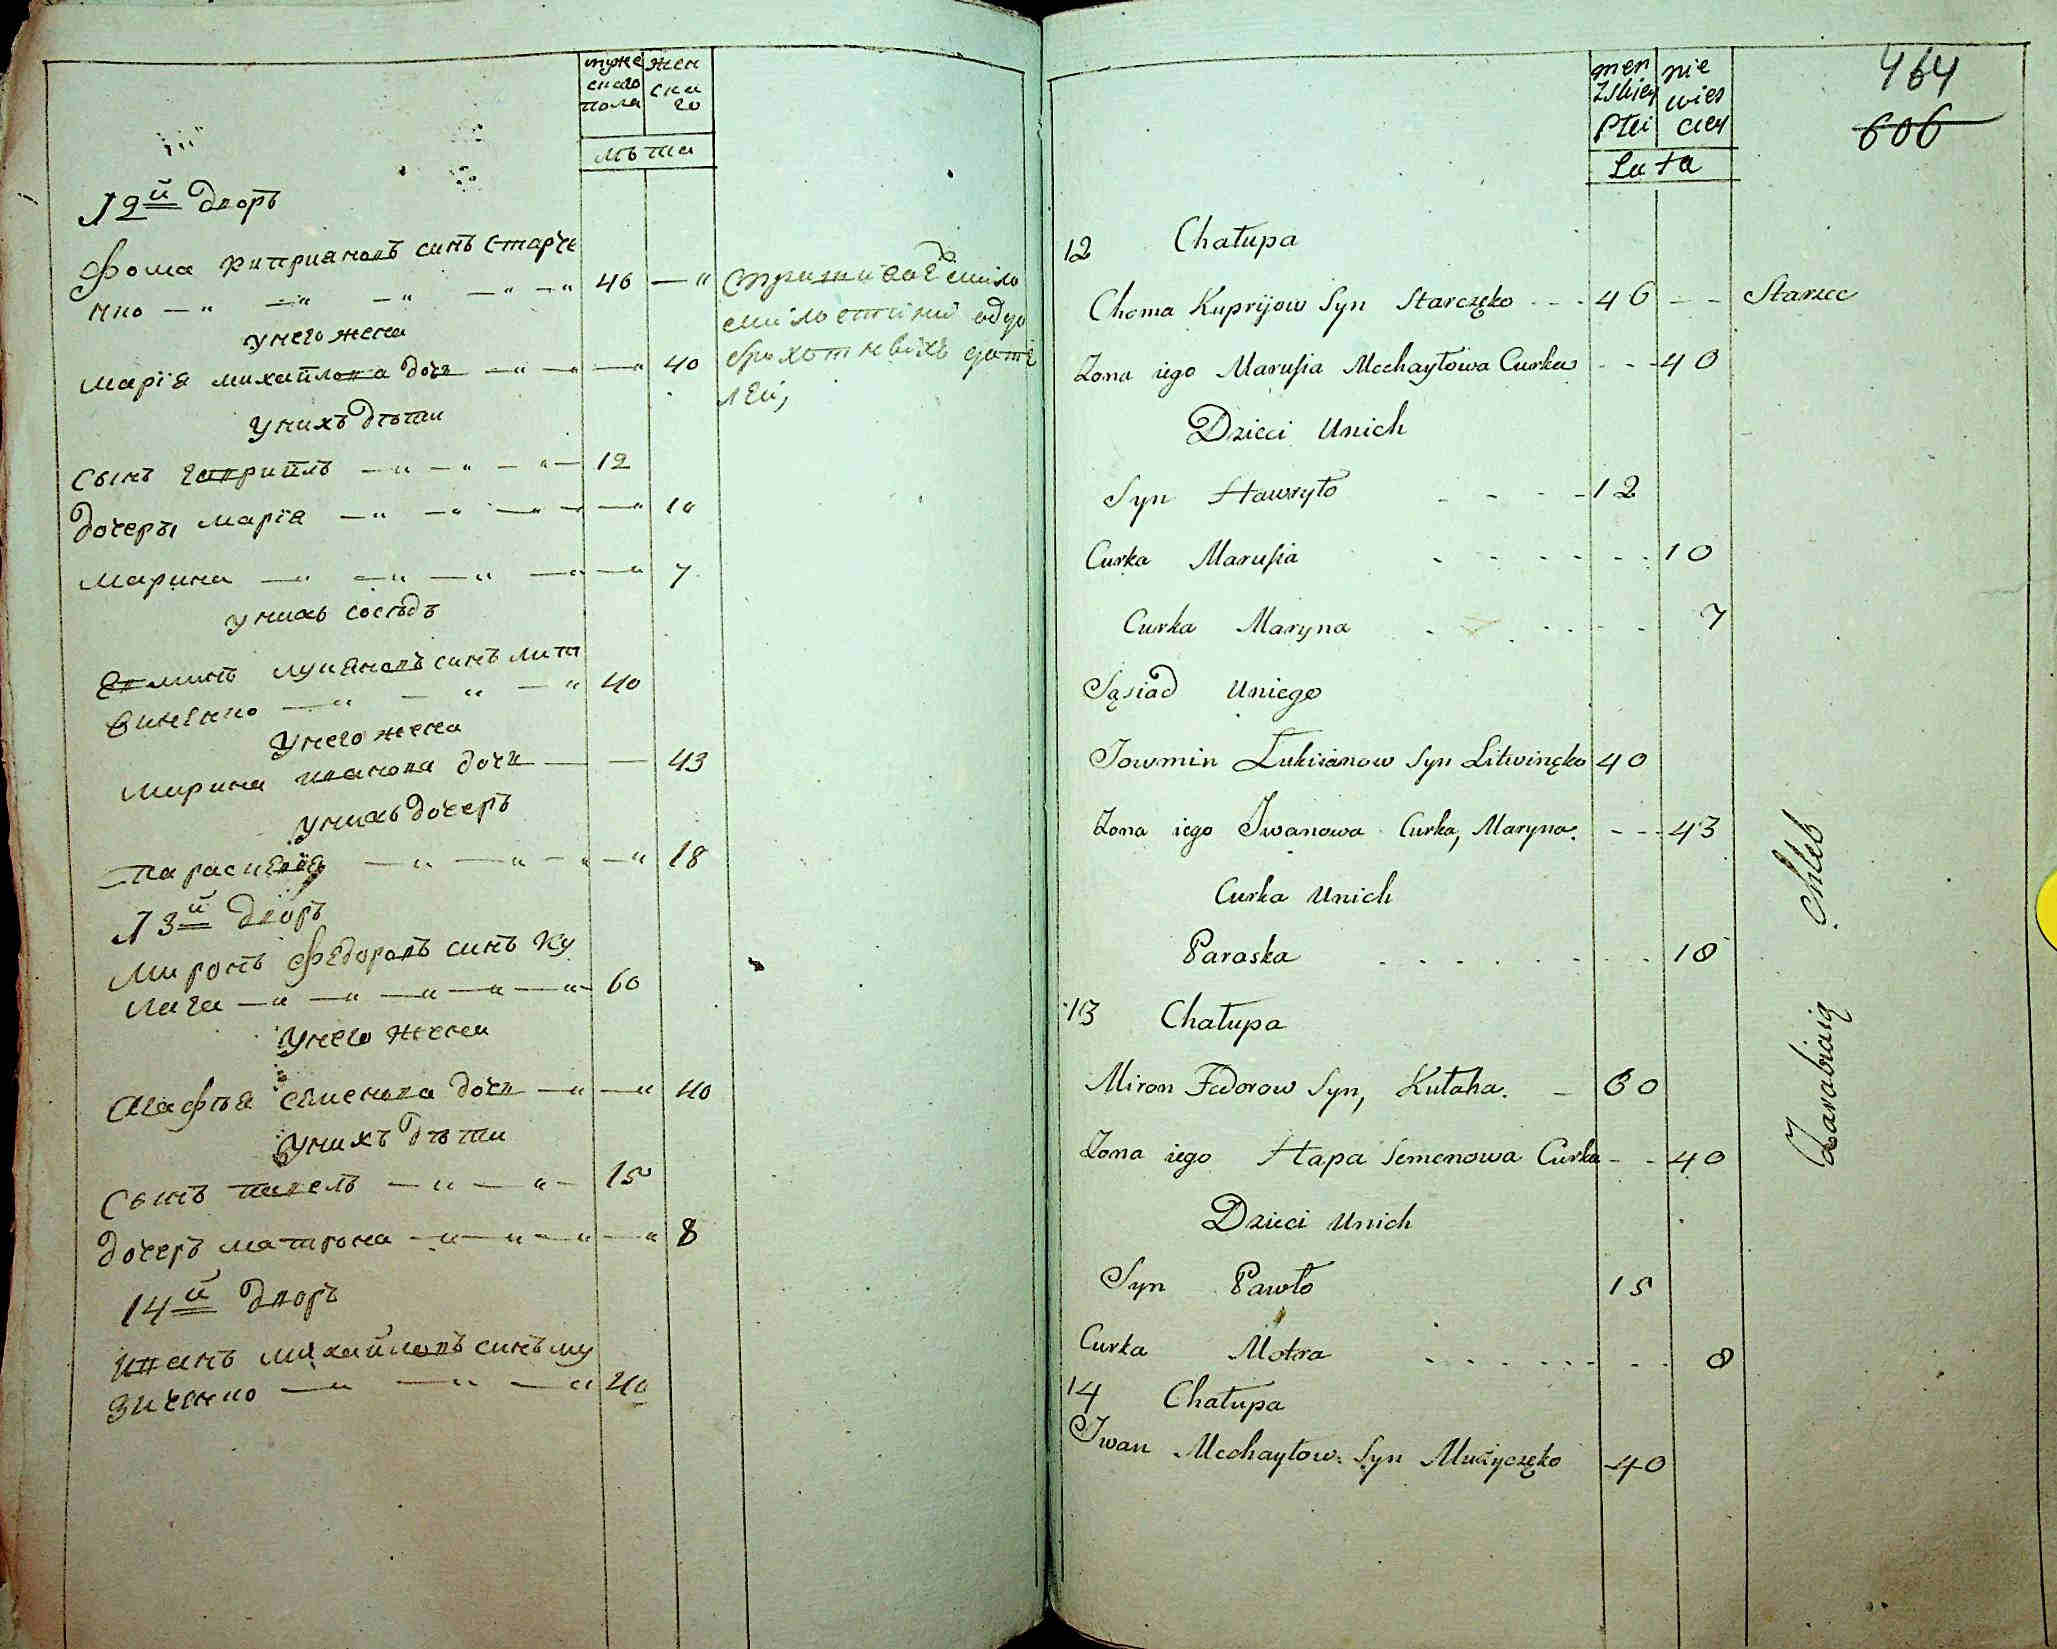 муже
скаго
пола
жен
ска
го
лѣта
12й дворъ
Фома киприановъ синъ Старче
нко 46
унего жена
мария михайлова дочь 40
унихъ дѣти
сынъ гавриилъ 12
дочеръ мария 10
марина 7
унихъ сосѣдъ
лукяновъ синъ лит
виненко 40
унего жена
марина иванова дочь 43
унихъ дочеръ
параскевия 18
13й дворъ
миронъ федоровъ синъ ку
лага 60
унего жена
агафья семенова дочь 40
унихъ дѣти
сынъ павелъ 15
дочеръ матрона 8
14й дворъ
иванъ михайловъ синъ му
зиченко 40
лей,
męzskiey Płci
niewiesciey
Lata
464
606
12 Chałupa
Choma Kuprijow Syn Starczęko 46 Starzec
Zona iego Marusia Mechayłowa Curka 40
Dzieci Unich
Syn Hawryło 12
Curka Marusia 10
Curka Maryna 7
Sąsiad Uniego
Jowmin Łukiianow Syn Litwinęko 40
Zona iego Iwanowa Curka, Maryna. 43
Curka Unich
Paraska 18
13 Chałupa
Miron Fedorow Syn, Kułaha. 60
Zona iego Hapa Semenowa Curka 40
Dzieci Unich
Syn Pawło 15
Curka Motra 8
14 Chałupa
Iwan Mechayłow Syn Muzyczęko 40
Zarabiaią Chleb